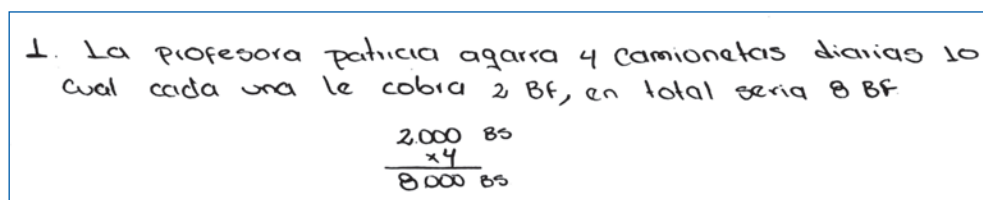 1. La profesora patricia agarra 4 camionetas diarias lo
cual cada una le cobra 2 BF, en total seria 8 BF
2.000 BS
x4
8000 BS